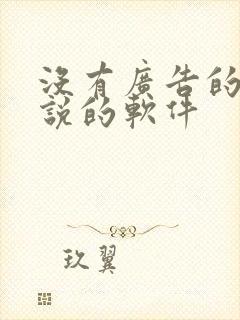 沒有廣告的
說的軟件
玖翼